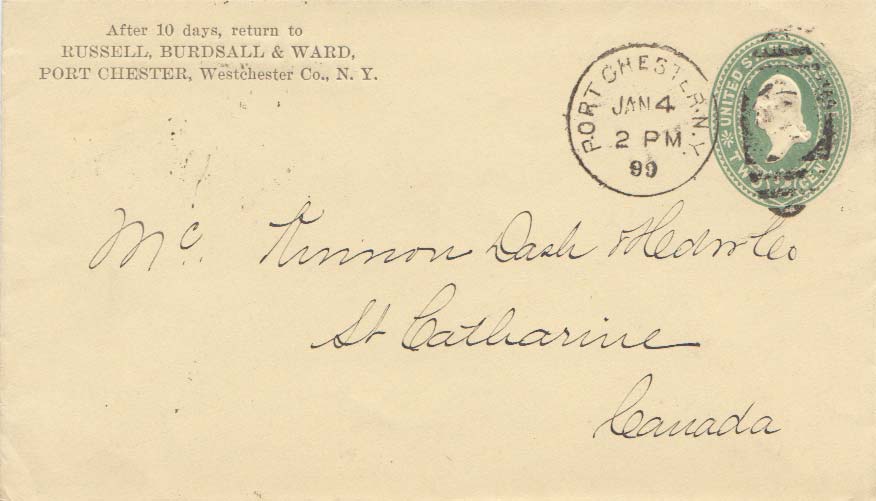 After 10 days, return to
RUSSELL, BURDSALL & WARD,
PORT CHESTER, Westchester Co., N. Y.
PORT CHESTER, N.Y.
JAN 4
2 PM
99
UNITED STATES
TWO CENTS
Mc Kinnon Dash & Hdw Co
St Catharine
Canada